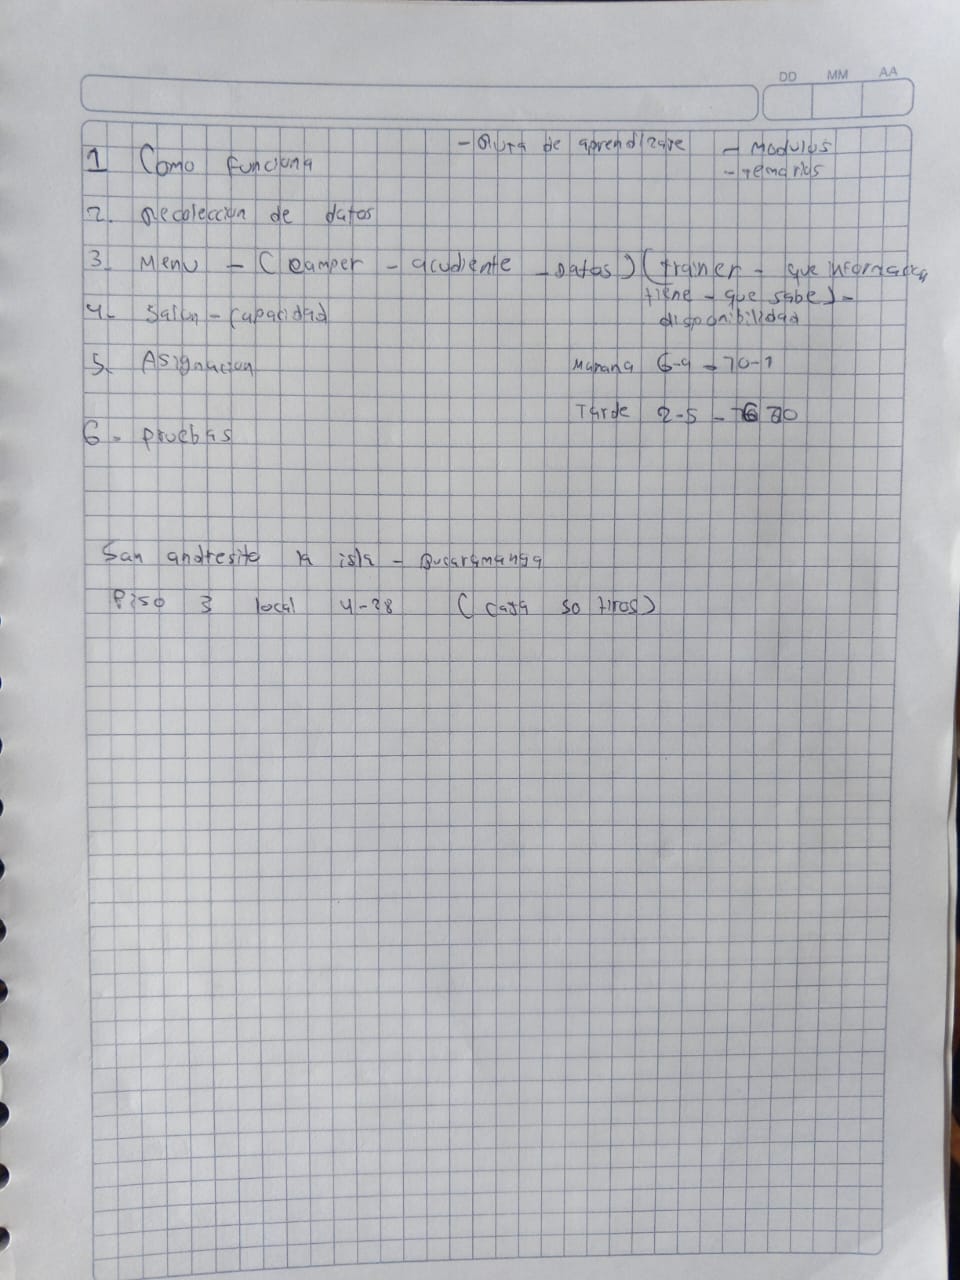 DD MM AA
1 Como funciona - Ruta de aprendizaje - Modulos
- temarios
2. Recoleccion de datos
3. Menu - (camper - acudiente - datos) (trainer - que informacion
tiene - que sabe) -
4. Salon - capacidad disponibilidad
5. Asignacion Mañana 6-9 - 10-1
Tarde 2-5 - 6 10
6. pruebas
San andresito la isla - Bucaramanga
Piso 3 local 4-28 (caja so tiros)